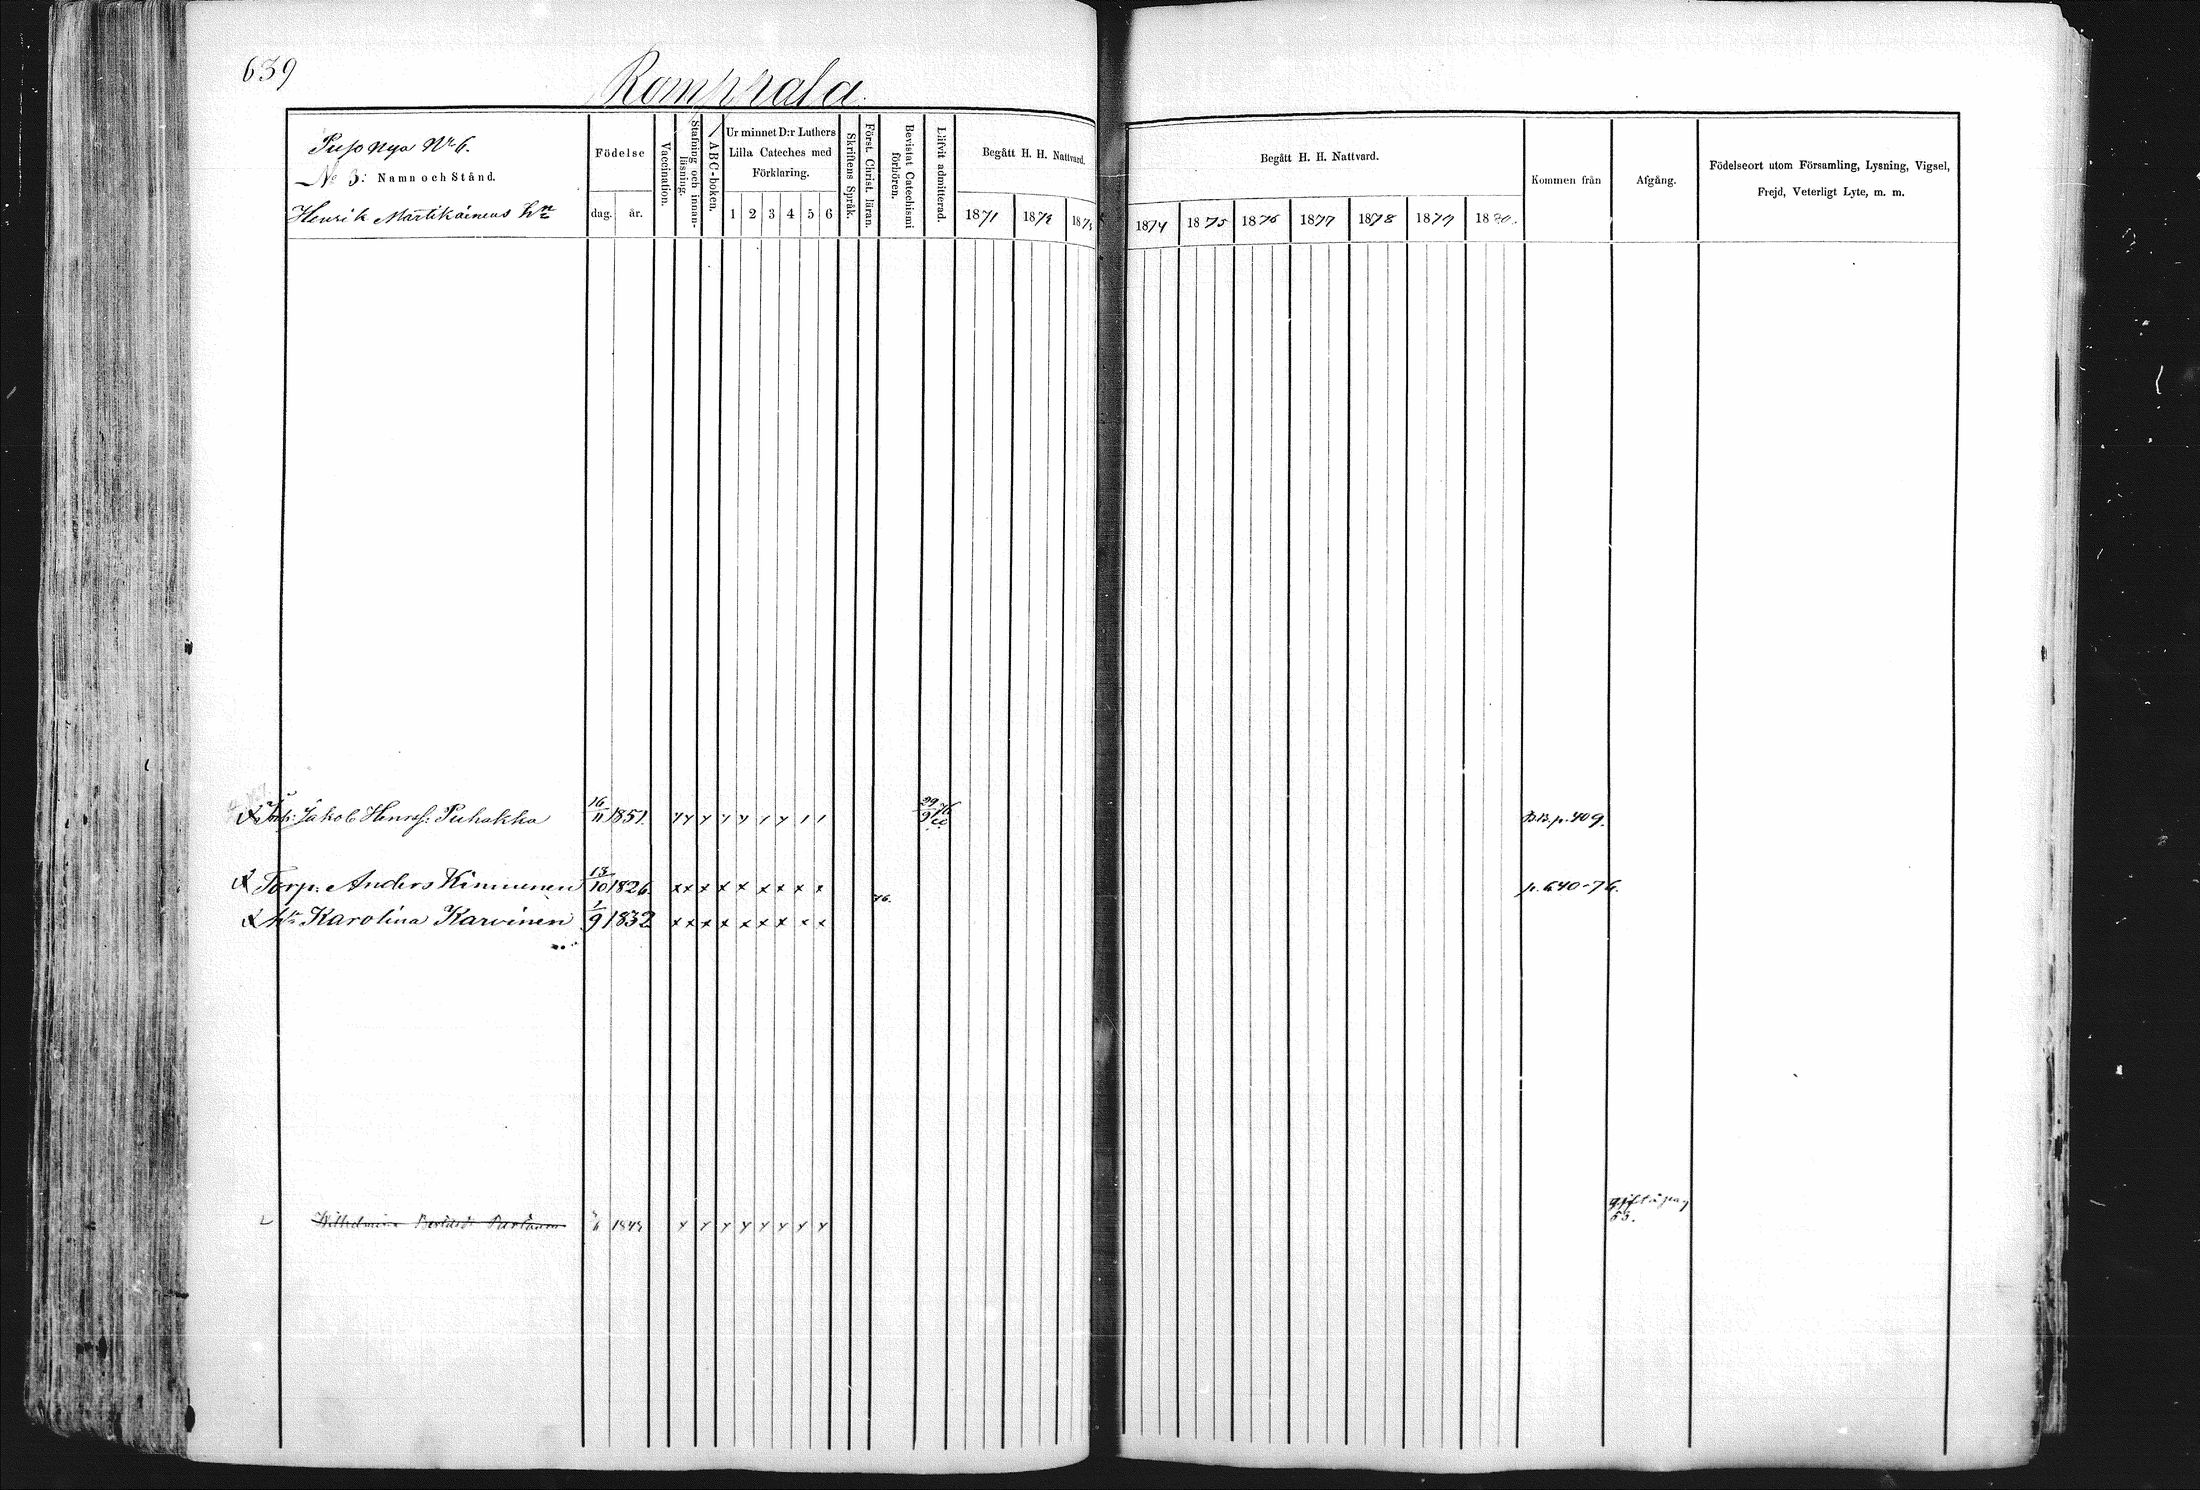 639
Romppala.
Puso nya No 6.
No 3: Namn och Stånd.
Henrik Martikainens hn
Födelse
dag. år.
Vaccination.
Stafning och innan-
läsning.
ABC-boken.
Ur minnet D:r Luthers
Lilla Cateches med
Förklaring.
1 2 3 4 5 6
Skriftens Språk.
Först. Christ. läran.
Bevistat Catechismi
förhören.
Lifvit admitterad.
Begått H. H. Nattvard.
1871 1872 1873
Begått H. H. Nattvard.
1874 1875 1876 1877 1878 1879 1880.
Kommen från
Afgång.
Födelseort utom Församling, Lysning, Vigsel,
Frejd, Veterligt Lyte, m. m.
Jakob Henrss: Puhakka 16/11 1851. 29/9 76 B.B. p. 409.
Torp: Anders Kinnunen 13/10 1826 p. 640-76.
76.
hu Karolina Karvinen 1/9 1832
Wilhelmina Partanen 1849
gift å pag
53.